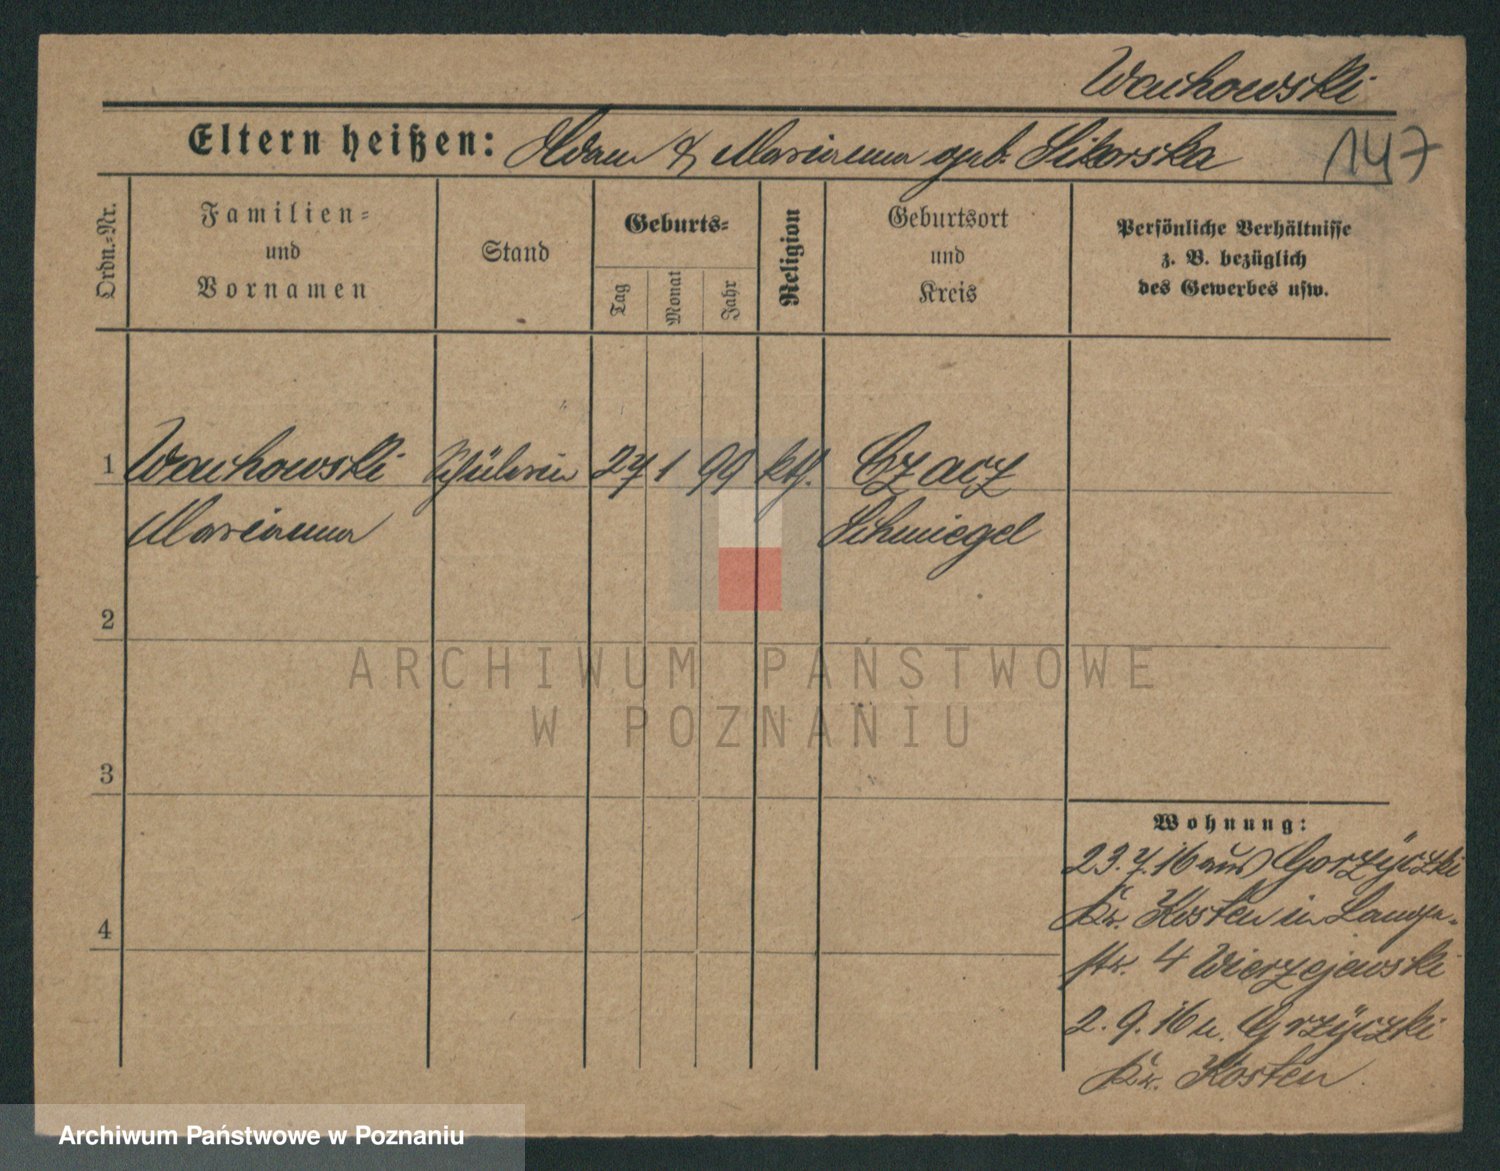 Wachowski
Eltern heißen: Adam & Marianna geb. Sikorska
147
Ordn.-Nr.
Familien-
und
Vornamen
Stand
Geburts-
Tag
Monat
Jahr
Religion
Geburtsort
und
Kreis
Persönliche Verhältnisse
z. B. bezüglich
des Gewerbes usw.
1 Wachowski Schülerin 27 1 99 kth. Czacz
Marianna Schmiegel
2
3
4
Wohnung:
23.7.16 aus Gorzyczki
Kr. Kosten in Lange-
str. 4 Wierzejewski
2.9.16 n. Grzyczki
Kr. Kosten.
ARCHIWUM PAŃSTWOWE
W POZNANIU
Archiwum Państwowe w Poznaniu